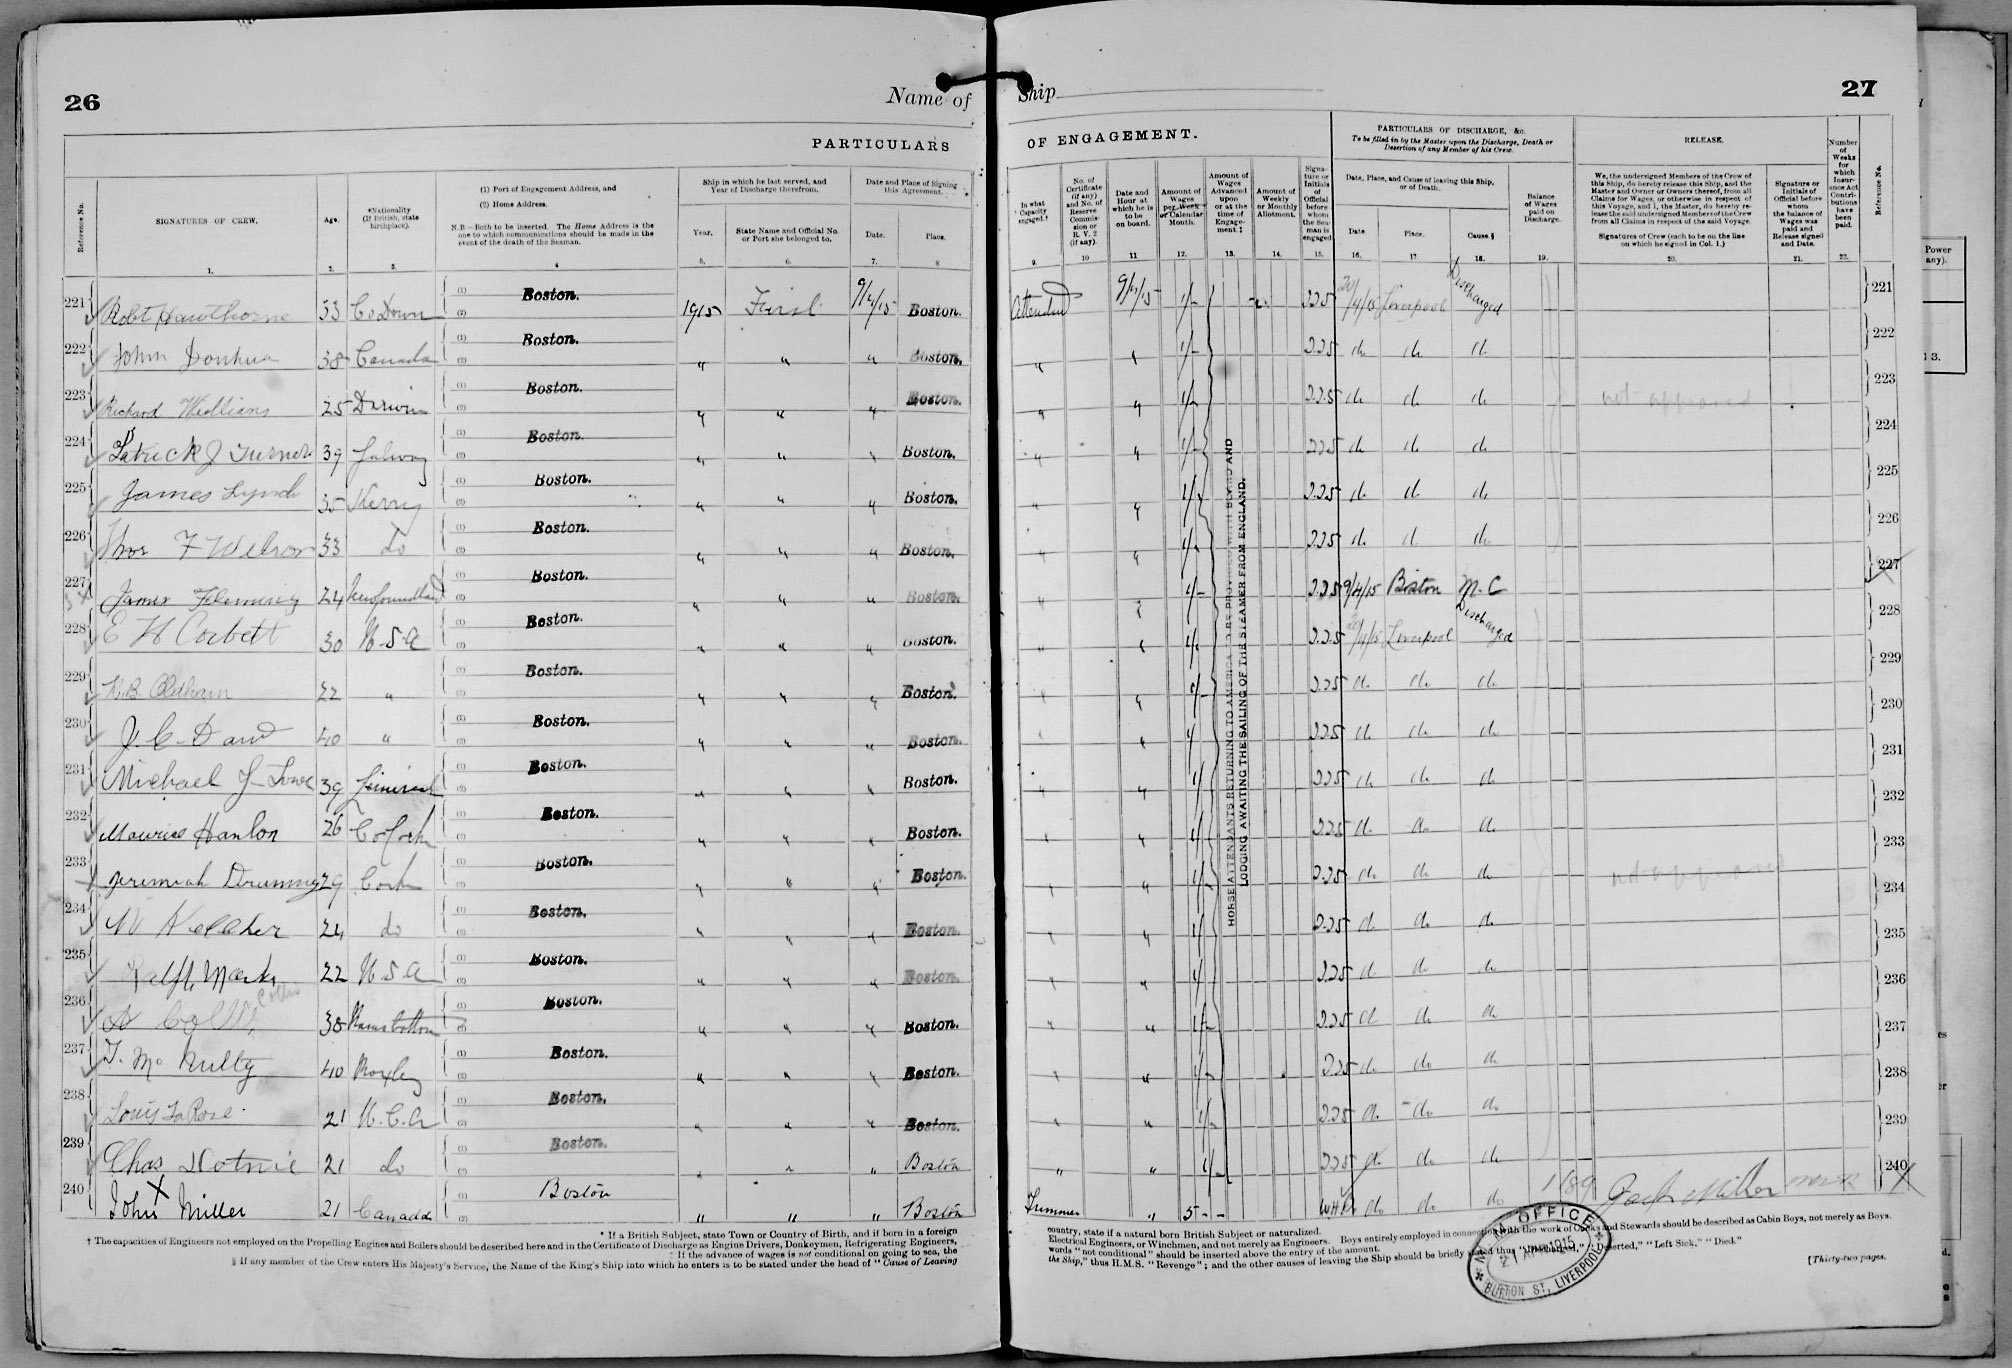 26
Name of
Ship
27
PARTICULARS
OF ENGAGEMENT.
PARTICULARS OF DISCHARGE, &c.
To be filled in by the Master upon the Discharge, Death or
Desertion of any Member of his Crew.
RELEASE.
Reference No.
SIGNATURES OF CREW.
Age.
*Nationality
(If British, state
birthplace).
(1) Port of Engagement Address, and
(2) Home Address.
N.B—Both to be inserted. The Home Address is the
one to which communications should be made in the
event of the death of the Seaman.
Ship in which he last served, and
Year of Discharge therefrom.
Year.
State Name and Official No.
or Port she belonged to.
Date and Place of Signing
this Agreement.
Date.
Place.
In what
Capacity
engaged.†
No. of
Certificate
(if any)
and No. of
Reserve
Commis-
sion or
R. V. 2
(if any).
Date and
Hour at
which he is
to be
on board.
Amount of
Wages
per Week
or Calendar
Month.
Amount of
Wages
Advanced
upon
or at the
time of
Engage-
ment.‡
Amount of
Weekly
or Monthly
Allotment.
Signa-
ture or
Initials
of
Official
before
whom
the Sea-
man is
engaged
Date, Place, and Cause of leaving this Ship,
or of Death.
Date.
Place.
Cause.§
Balance
of Wages
paid on
Discharge.
We, the undersigned Members of the Crew of
this Ship, do hereby release this Ship, and the
Master and Owner or Owners thereof, from all
Claims for Wages, or otherwise in respect of
this Voyage, and I, the Master, do hereby re-
lease the said undersigned Members of the Crew
from all Claims in respect of the said Voyage.
Signatures of Crew (each to be on the line
on which he signed in Col. 1.)
Signature or
Initials of
Official before
whom
the balance of
Wages was
paid and
Release signed
and Date.
Number
of
Weeks
for
which
Insur-
ance Act
Contri-
butions
have
been
paid.
Reference No.
1. 2. 3. 4 5. 6. 7. 8 9. 10 11 12. 13. 14. 15. 16. 17. 18. 19. 20. 21. 22.
221 Robt Hawthorne 33 Co Down (1) Boston. (2) 1915 First 9/4/15 Boston. Attendant 9/4/15 1/- 225 20/4/15 Liverpool Discharged 221
222 John Donhua 38 Canada (1) Boston. (2) " " " Boston. " " 1/- 225 do do do 222
223 Richard Williams 25 Darwin (1) Boston. (2) " " " Boston. " " 1/- 225 do do do not appeared 223
224 Patrick J Turner 39 Galway (1) Boston. (2) " " " Boston. " " 1/- 225 do do do 224
225 James Lynch 35 Kerry (1) Boston. (2) " " " Boston. " " 1/- 225 do do do 225
226 Thos F 33 do (1) Boston. (2) " " " Boston. " " 1/- 225 do do do 226
227 James Fleming 24 Newfoundland (1) Boston. (2) " " " Boston. " " 1/- 225 9/4/15 Boston N. C 227
228 E H Corbett 30 U.S.A (1) Boston. (2) " " " Boston. " " 1/- 225 20/4/15 Liverpool Discharged 228
229 K.B. Oldham 22 " (1) Boston. (2) " " " Boston. " " 1/- 225 do do do 229
230 J. C. 40 " (1) Boston. (2) " " " Boston. " " 1/- 225 do do do 230
231 Michael J Lowe 39 Limerick (1) Boston. (2) " " " Boston. " " 1/- 225 do do do 231
232 Maurice Hanlon 26 Co Cork (1) Boston. (2) " " " Boston. " " 1/- 225 do do do 232
233 Jeremiah Drumney 29 Cork (1) Boston. (2) " " " Boston. " " 1/- 225 do do do not appeared 233
234 Kelleher 24 do (1) Boston. (2) " " " Boston. " " 1/- 225 do do do 234
235 Ralph Marks 22 U.S.A (1) Boston. (2) " " " Boston. " " 1/- 225 do do do 235
236 A Collis 38 Ramsbottom (1) Boston. (2) " " " Boston. " " 1/- 225 do do do 236
237 T. Mc Nulty 40 (1) Boston. (2) " " " Boston. " " 1/- 225 do do do 237
238 Louis LaRose 21 U.S.A (1) Boston. (2) " " " Boston. " " 1/- 225 do do do 238
239 Chas 21 do (1) Boston. (2) " " " Boston " " 1/- 225 do do do 239
240 John X Miller 21 Canada (1) Boston (2) " " " Boston Trimmer " 5 - - do do do 1/89 Jack Miller 240
HORSE ATTENDANTS RETURNING TO AMERICA TO BE PROVIDED WITH BOARD AND
LODGING AWAITING THE SAILING OF THE STEAMER FROM ENGLAND.
* If a British Subject, state Town or Country of Birth, and if born in a foreign
country, state if a natural born British Subject or naturalized.
† The capacities of Engineers not employed on the Propelling Engines and Boilers should be described here and in the Certificate of Discharge as Engine Drivers, Donkeymen, Refrigerating Engineers,
Electrical Engineers, or Winchmen, and not merely as Engineers. Boys entirely employed in connection with the work of Cooks and Stewards should be described as Cabin Boys, not merely as Boys.
‡ If the advance of wages is not conditional on going to sea, the
words "not conditional" should be inserted above the entry of the amount.
§ If any member of the Crew enters His Majesty's Service, the Name of the King's Ship into which he enters is to be stated under the head of "Cause of Leaving
the Ship," thus H.M.S. "Revenge"; and the other causes of leaving the Ship should be briefly stated thus "Discharged," "Deserted," "Left Sick," "Died."
[Thirty-two pages.
M.M. OFFICE
21 APR 1915
BURTON ST, LIVERPOOL
Power
any).